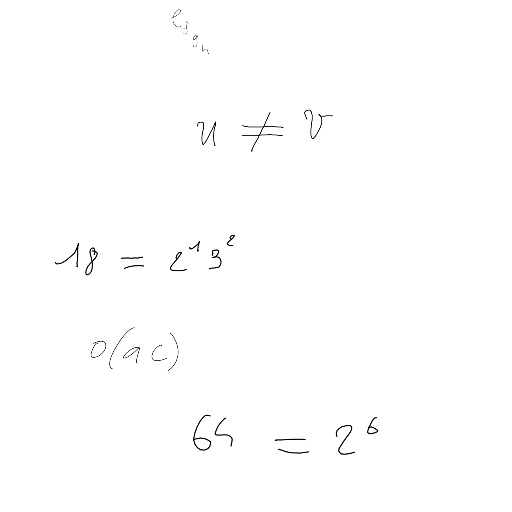 l_{g_{g_n}}
u ≠ v
18 = 2^1 3^2
O(ac)
64 = 2^6